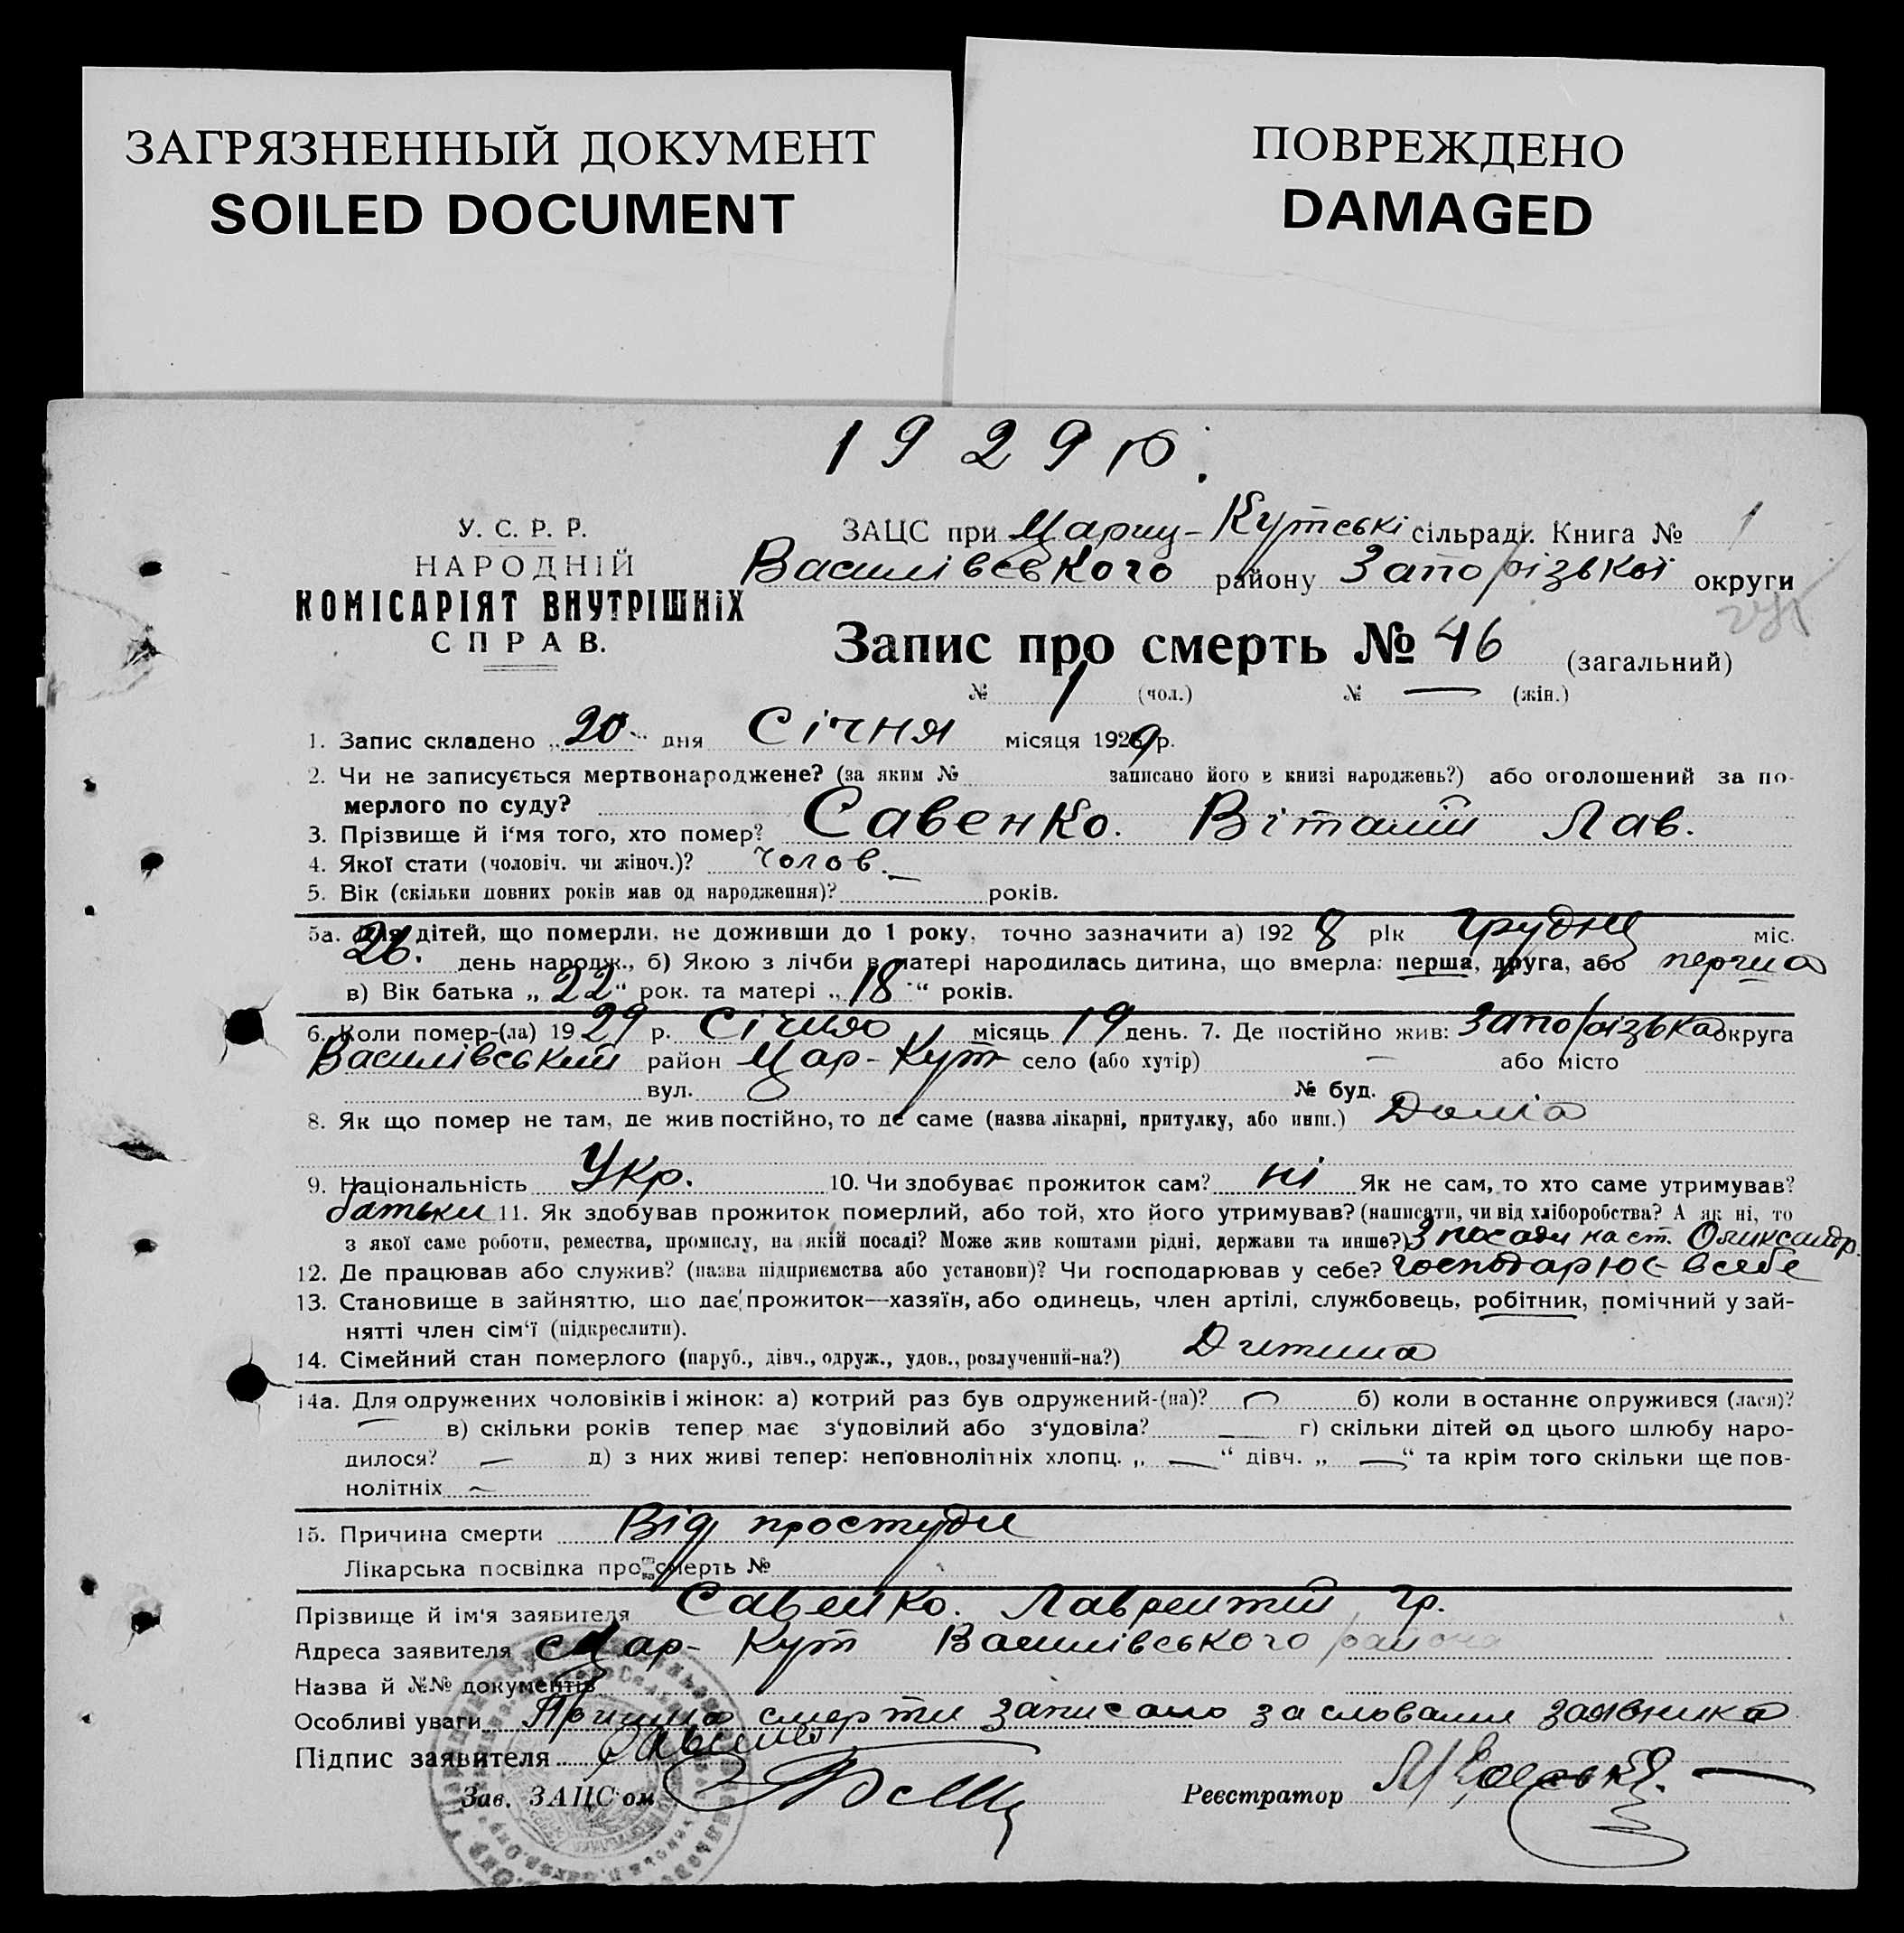 ЗАГРЯЗНЕННЫЙ ДОКУМЕНТ
SOILED DOCUMENT
ПОВРЕЖДЕНО
DAMAGED
1929 р.
У. С. Р. Р.
НАРОДНІЙ
КОМІСАРІЯТ ВНУТРІШНІХ
СПРАВ.
ЗАЦС при Цариц-Кутські сільраді. Книга № 1
Василівського району Запорізької округи
Запис про смерть № 46 (загальний)
№ 1 (чол.) № — (жін.)
1. Запис складено „20“ дня Січня місяця 1929 р.
2. Чи не записується мертвонароджене? (за яким № записано його в книзі народжень?) або оголошений за по-
мерлого по суду?
3. Прізвище й і‘мя того, хто помер? Савенко. Віталій Лав.
4. Якої стати (чоловіч. чи жіноч.)? Чолов.
5. Вік (скільки повних років мав од народження)? — років.
5а. Для дітей, що померли, не доживши до 1 року, точно зазначити а) 1928 рік Грудня міс.
26. день народж., б) Якою з лічби в матері народилась дитина, що вмерла: перша, друга, або перша
в) Вік батька „22“ рок. та матері „18“ років.
6. Коли помер-(ла) 1929 р. Січня місяць 19 день. 7. Де постійно жив: Запорізька округа
Василівський район Цар-Кут село (або хутір) — або місто
вул. № буд.
8. Як що помер не там, де жив постійно, то де саме (назва лікарні, притулку, або инш.) Дома
9. Національність Укр. 10. Чи здобуває прожиток сам? ні Як не сам, то хто саме утримував?
батьки 11. Як здобував прожиток померлий, або той, хто його утримував? (написати, чи від хліборобства? А як ні, то
з якої саме роботи, ремества, промислу, на якій посаді? Може жив коштами рідні, держави та инше?) З посади на ст. Олександр.
12. Де працював або служив? (назва підприємства або установи)? Чи господарював у себе? Господарює в себе
13. Становище в зайняттю, що дає прожиток—хазяїн, або одинець, член артілі, службовець, робітник, помічний у зай-
нятті член сім‘ї (підкреслити).
14. Сімейний стан померлого (паруб., дівч., одруж., удов., розлучений-на?) Дитина
14а. Для одружених чоловіків і жінок: а) котрий раз був одружений-(на)? — б) коли в останнє одружився (лася)?
— в) скільки років тепер має з‘удовілий або з‘удовіла? — г) скільки дітей од цього шлюбу наро-
дилося? — д) з них живі тепер: неповнолітніх хлопц. „—“ дівч. „—“ та крім того скільки ще пов-
нолітніх —
15. Причина смерти Від простуди
Лікарська посвідка про смерть №
Прізвище й ім‘я заявителя Савенко. Лаврентій Гр.
Адреса заявителя с Цар-Кут Василівського района
Назва й №№ документів
Особливі уваги Причина смерти записано за словами заявника
Підпис заявителя Савенко
Зав. ЗАЦС‘ом
Реєстратор